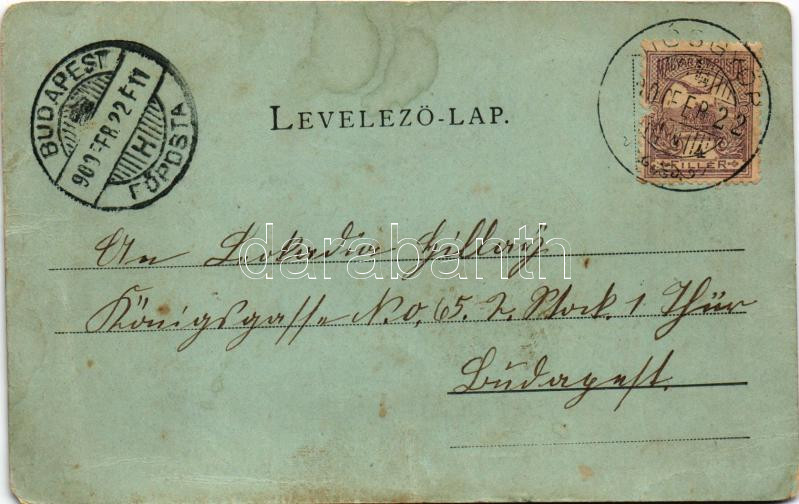 BUDAPEST
900 FEB. 22 F11
H
FŐPOSTA
LEVELEZŐ-LAP.
MAGYAR KIR. POSTA
FEB 22
FILLÉR
An Lokadia Gillay
Königsgasse No. 65. 2. Stock. 1 Thür
Budapest.
darabanth